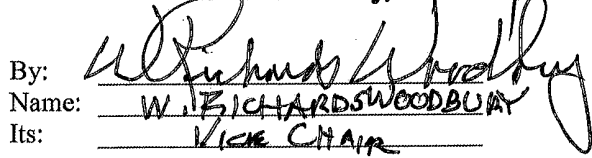 By: W Richards Woodbury
Name: W. RICHARDS WOODBURY
Its: VICE CHAIR